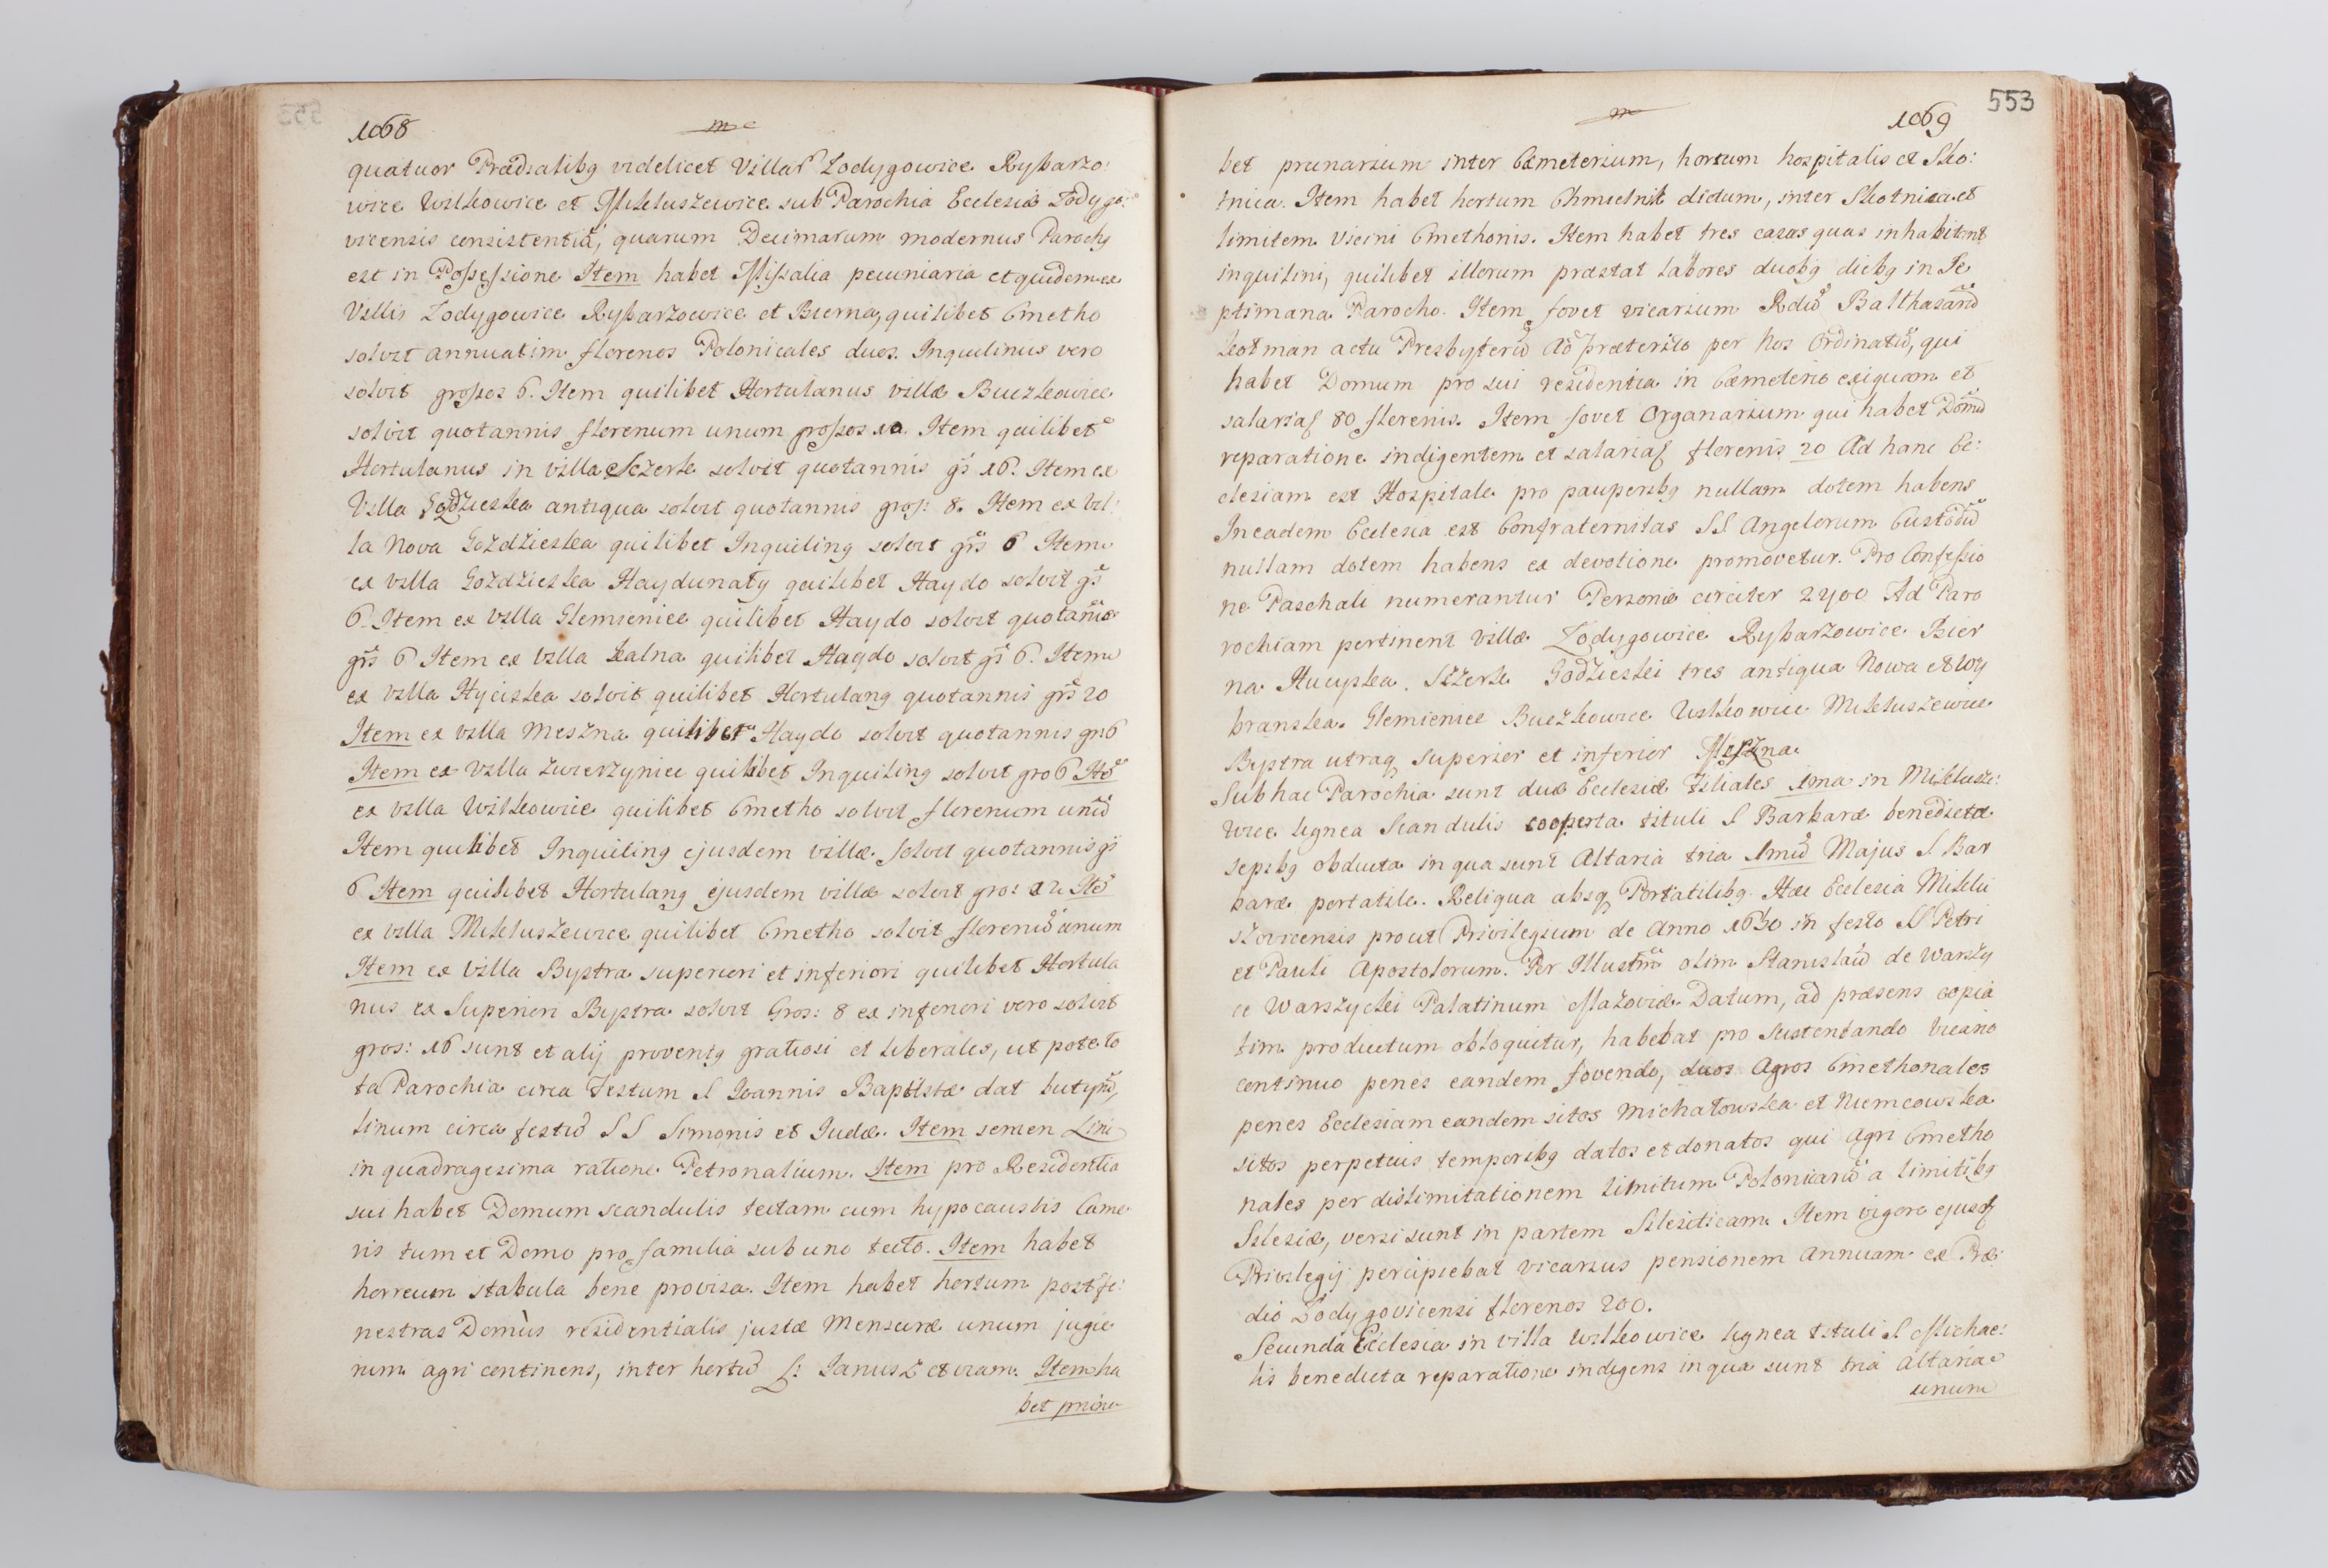 1068
quatuor Prædialibg videlicet Villar Łodygowice Rybarzo:
wice Wilkowice et Mikluszewice sub Parochia Ecclesiæ Łodygo:
vicensis consistentiu, quarum Decimarum modernus Parochg
est in Possessione Item habet Missalia pecuniaria et quidem ex
Villis Łodygowice Rybarzowice et Bierna, quilibet Cmetho
solvit annuatim florenos Polonicales duos. Inquilinus vero
solvit grossos 6. Item quilibet Hortulanus villæ Buczkowice
solvit quotannis florenum unum grossos 10. Item quilibet
Hortulanus in villa Sczerk solvit quotannis gs 16. Item ex
Villa Godzieska antiqua solvit quotannis gros: 8. Item ex Vil:
la Nova Gozdzieska quilibet Inquiling solvit grs 6 Item
ex villa Gozdzieska Haydunaty quilibet Haydo solvit gs
6. Item ex Villa Glemieniec quilibet Haydo solvit quotanis
grs 6 Item ex Villa Kalna quilibet Haydo solvit gs 6. Item
ex villa Hyciska solvit quilibet Hortulang quotannis grs 20
Item ex villa Meszna quilibet Haydo solvit quotannis gr: 6
Item ex Villa Zwierzyniec quilibet Inquiling solvit gro 6 Ite
ex villa Wilkowice quilibet Cmetho solvit florenum unu
Item quilibet Inquiling ejusdem villæ solvit quotannis gs
6 Item quilibet Hortulang ejusdem villæ solvit gro: 12 Ite
ex villa Mikluszewice quilibet Cmetho solvit florenu unum
Item ex Villa Bystra superiori et inferiori quilibet Hortula
nus ex Superiori Bystra solvit Gros: 8 ex inferiori vero solvit
gros: 16 sunt et alij proventg gratiosi et liberales, ut pote to
ta Parochia circa Festum S Joannis Baptistæ dat butyru,
linum circa festu S S Simonis et Judæ. Item semen Lini
in quadragesima ratione Petronalium. Item pro Residentia
sui habet Domum scandulis tectam cum hypocaustis Came
ris tum et Domo pro familia sub uno tecto. Item habet
horreum stabula bene provisa. Item habet hortum post fe:
nestras Domùs residentialis justæ Mensuræ unum juge
rum agri continens, inter hortu f: Janusz et viam. Item ha
bet prune
1069
553
bet prunarium inter Cæmeterium, hortum hospitalis et Sko:
tnica. Item habet hortum Chmielnik dictum, inter Skotnica et
limitem vicini Cmethonis. Item habet tres casas quas inhabitant
inquilini, quilibet illorum præstat labores duobg diebg in Se
ptimana Parocho. Item fovet vicarium Rdu Balthasaru
Kotman actu Presbyteru Ao præterito per Nos Ordinatu, qui
habet Domum pro sui residentia in Cæmeterio exiguam et
salariaf 80 florenis. Item fovet Organarium qui habet Domu
reparatione indigentem et salariaf florenis 20 Ad hanc Ec:
clesiam est Hospitale pro pauperibg nullam dotem habens
In eadem Ecclesia est Confraternitas SS Angelorum Custodu
nullam dotem habens ex devotione promovetur. Pro Confessio
ne Paschali numerantur Personæ circiter 2400 Ad Paro
rochiam pertinent villæ Łodygowice Rybarzowice Bier
na Hucyska. Sczerk Godzieski tres antiqua Nowa et Wy
branska. Glemieniec Buczkowice Wilkowice Mikluszewice
Bystra utraq superior et inferior Meszna.
Sub hac Parochia sunt duæ Ecclesiæ Filiales 1ma in Miklusze:
wice lignea Scandulis cooperta tituli S Barbaræ benedicta
sepibg obducta in qua sunt Altaria tria 1mu Majus S Bar
baræ portatile. Reliqua absq Portatilibg. Hæc Ecclesia Miklu
szovicensis prout Privilegium de Anno 1630 in festo SS Petri
et Pauli Apostolorum. Per Illustm olim Stanislau de Warszy
ce Warszycki Palatinum Mazoviæ Datum, ad præsens copia
tim productum obloquitur, habebat pro Sustentando Vicario
continuo penes eandem fovendo, duos Agros Cmethonales
penes Ecclesiam eandem sitos Michałowska et Niemcowska
sitos perpetuis temporibg datos et donatos qui Agri Cmetho
nales per dislimitationem limitum Polonicaru a limitibg
Silesiæ, versi sunt in partem Silesiticam. Item vigore ejusd
Privilegij percipiebat vicarius pensionem Annuam ex Præ:
dio Łodygovicensi florenos 200.
Secunda Ecclesia in villa Wilkowice lignea tituli S Michae:
lis benedicta reparatione indigens in qua sunt tria Altaria
unum